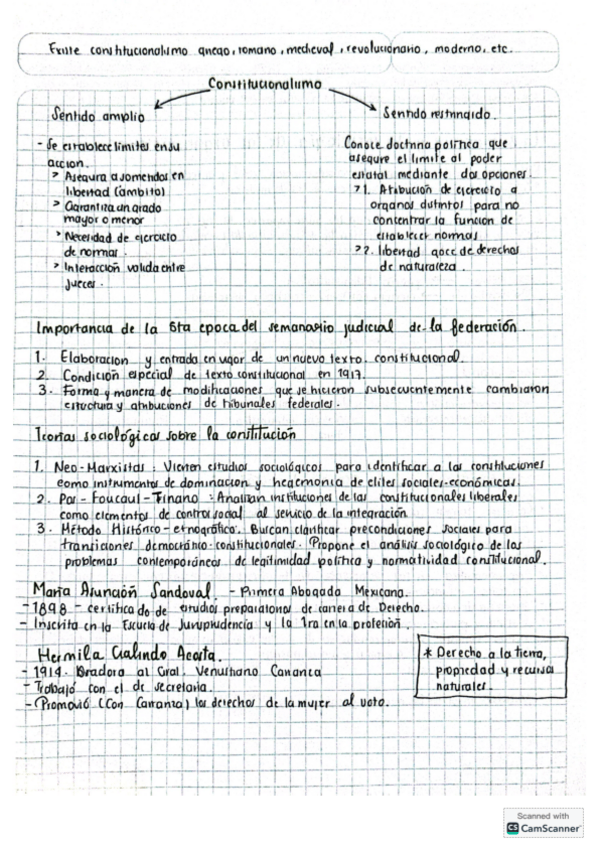 Existe constitucionalismo griego, romano, medieval, revolucionario, moderno, etc.
Constitucionalismo
Sentido amplio
- Se establece limites en su
accion.
> Asegura a somendos en
libertad (ambito)
> Garantiza un grado
mayor o menor
> Necesidad de ejercicio
de normas.
> Interacción valida entre
jueces.
Sentido restringido.
Conoce doctrina política que
asegure el limite al poder
estatal mediante dos opciones.
> 1. Atribución de ejercicio a
organos distintos para no
concentrar la función de
establecer normas
> 2. libertad goce de derechos
de naturaleza.
Importancia de la 5ta epoca del semanario judicial de la federación.
1. Elaboracion y entrada en vigor de un nuevo texto constitucional.
2. Condición especial de texto constitucional en 1917.
3. Forma y manera de modificaciones que se hicieron subsecuentemente cambiaron
estructura y atribuciones de tribunales federales.
Teorías sociológicas sobre la constitución
1. Neo-Marxistas: Vienen estudios sociológicos para identificar a las constituciones
como instrumentos de dominacion y hegemonia de elites sociales-económicas.
2. Pos-Foucaul-Tinano: Analizan instituciones de las constitucionales liberales
como elementos de control social al servicio de la integración
3. Método Histórico-etnográfico. Buscan clarificar precondiciones sociales para
transiciones democrático-constitucionales. Propone el análisis sociológico de los
problemas contemporáneos de legitimidad política y normatividad constitucional.
María Asunción Sandoval. - Primera Abogada Mexicana.
- 1898 - certificado de estudios preparatorios de carrera de Derecho.
- Inscrita en la Escuela de Jurisprudencia y la 1ra en la profesión.
Hermila Galindo Acosta.
- 1914. Oradora al Gral. Venustiano Carranza
- Trabajó con el de secretaria.
- Promovió (Con Carranza) los derechos de la mujer al voto.
* Derecho a la tierra,
propiedad y recursos
naturales.
Scanned with
CS CamScanner